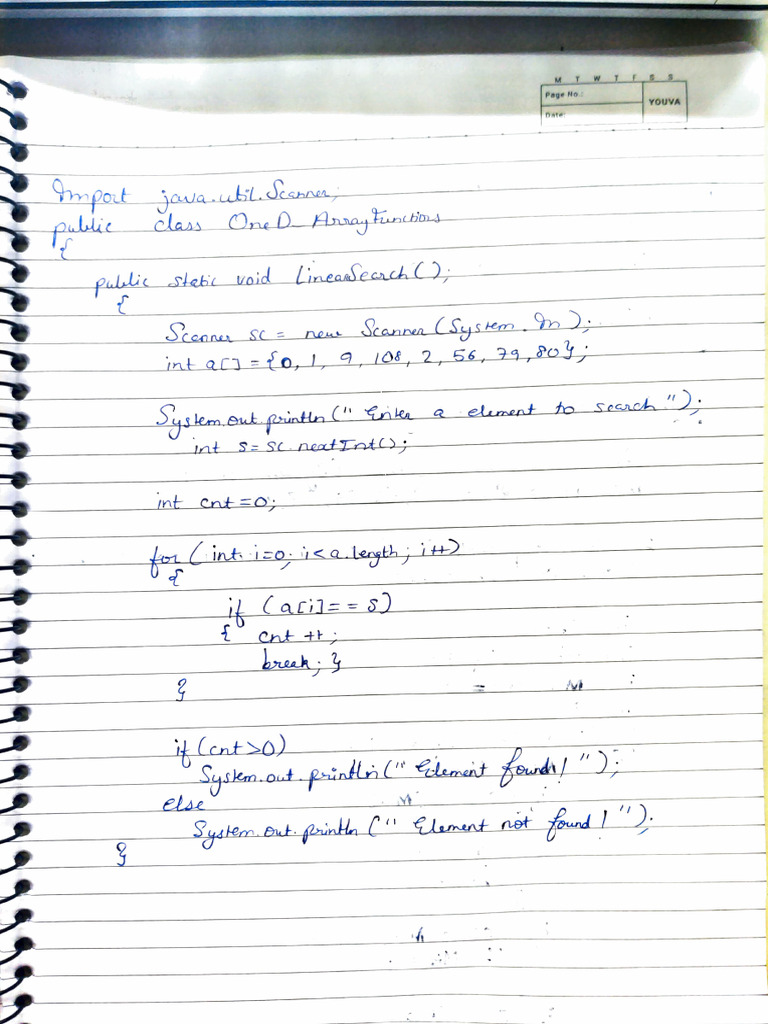 M T W T F S S
Page No.:
YOUVA
Date:
Import java.util.Scanner;
public class OneD_ArrayFunctions
{
public static void LinearSearch();
{
Scanner sc = new Scanner(System.In);
int a[] = {0, 1, 9, 108, 2, 56, 79, 80};
System.out.println(" Enter a element to search ");
int s = sc.nextInt();
int cnt = 0;
for (int i=0; i<a.length; i++)
{
if (a[i] == s)
{ cnt ++;
break; }
}
if (cnt>0)
System.out.println(" Element found! ");
else
System.out.println (" Element not found! ");
}